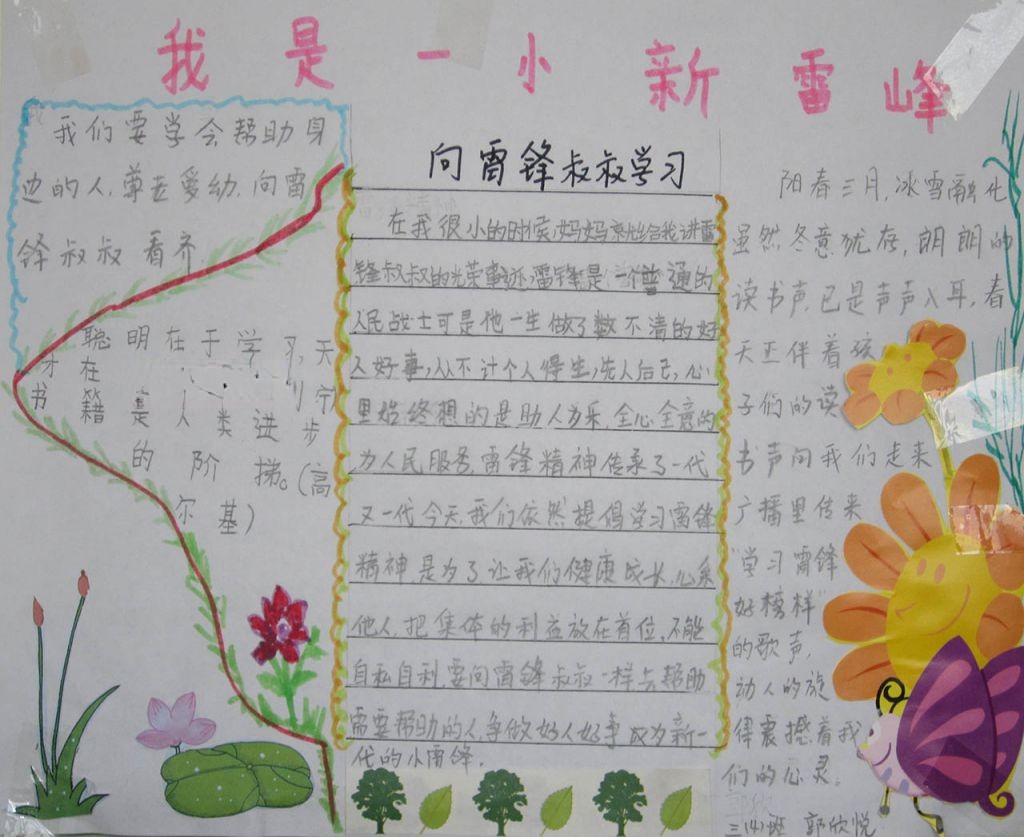 我是一小新雷峰
我们要学会帮助身
边的人,尊老爱幼,向雷
锋叔叔看齐
聪明在于学习,天
才在
书籍是人类进步
的阶梯。(高
尔基)
向雷锋叔叔学习
在我很小的时候,妈妈就给我讲雷
锋叔叔的光荣事迹,雷锋是一个普通的
人民战士可是他一生做了数不清的好
人好事,从不计个人得失,先人后己,心
里始终想的是助人为乐,全心全意的
为人民服务,雷锋精神传承了一代
又一代今天,我们依然提倡学习雷锋
精神,是为了让我们健康成长,心系
他人,把集体的利益放在首位,不能
自私自利,要向雷锋叔叔一样去帮助
需要帮助的人,争做好人好事成为新一
代的小雷锋.
阳春三月,冰雪融化
虽然冬意犹存,朗朗的
读书声,已是声声入耳,春
天正伴着孩
子们的读
书声向我们走来
广播里传来
"学习雷锋
好榜样"
的歌声,
动人的旋
律震撼着我
们的心灵。
三(4)班 郭欣悦